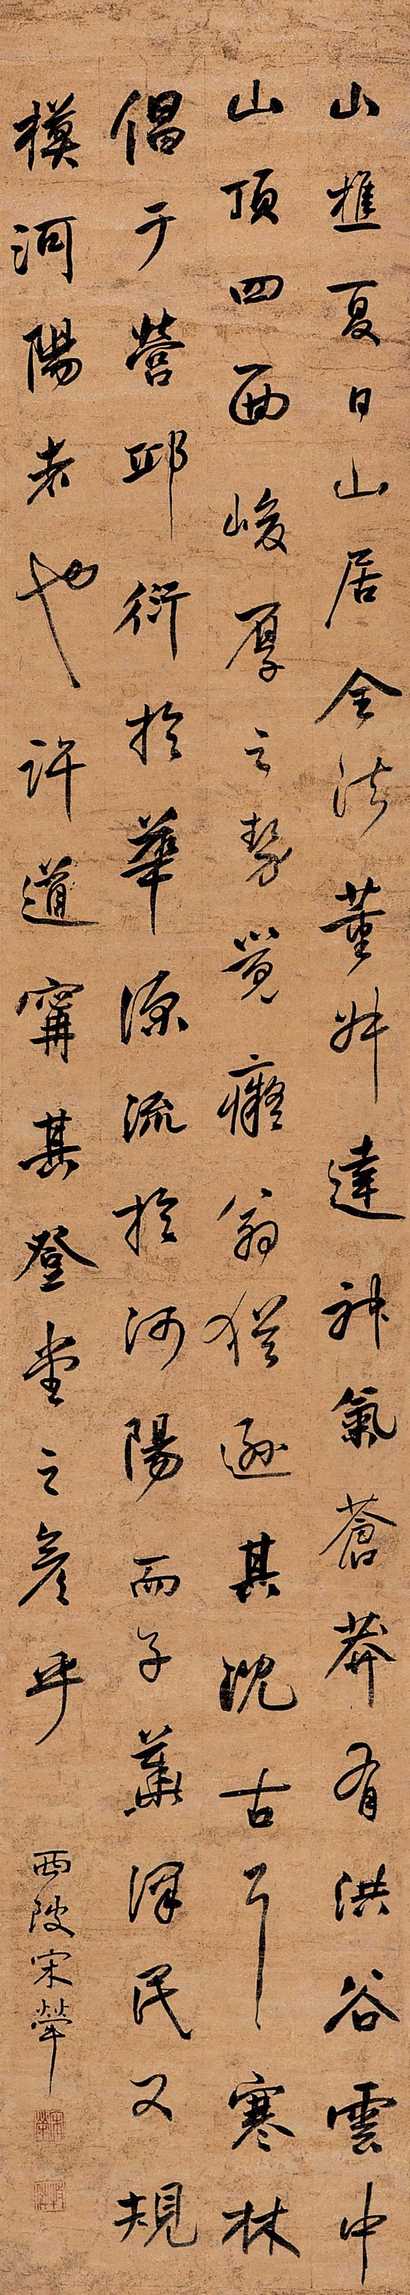 山樵夏日山居全法董叔達神氣蒼莽有洪谷雲中
山頂四面峻厚之勢覺癡翁猶遜其沈古耳寒林
倡于營邱衍於華源流於河陽而子蕭澤民又規
模河陽者也許道寧其登堂之彥乎
西陂宋犖